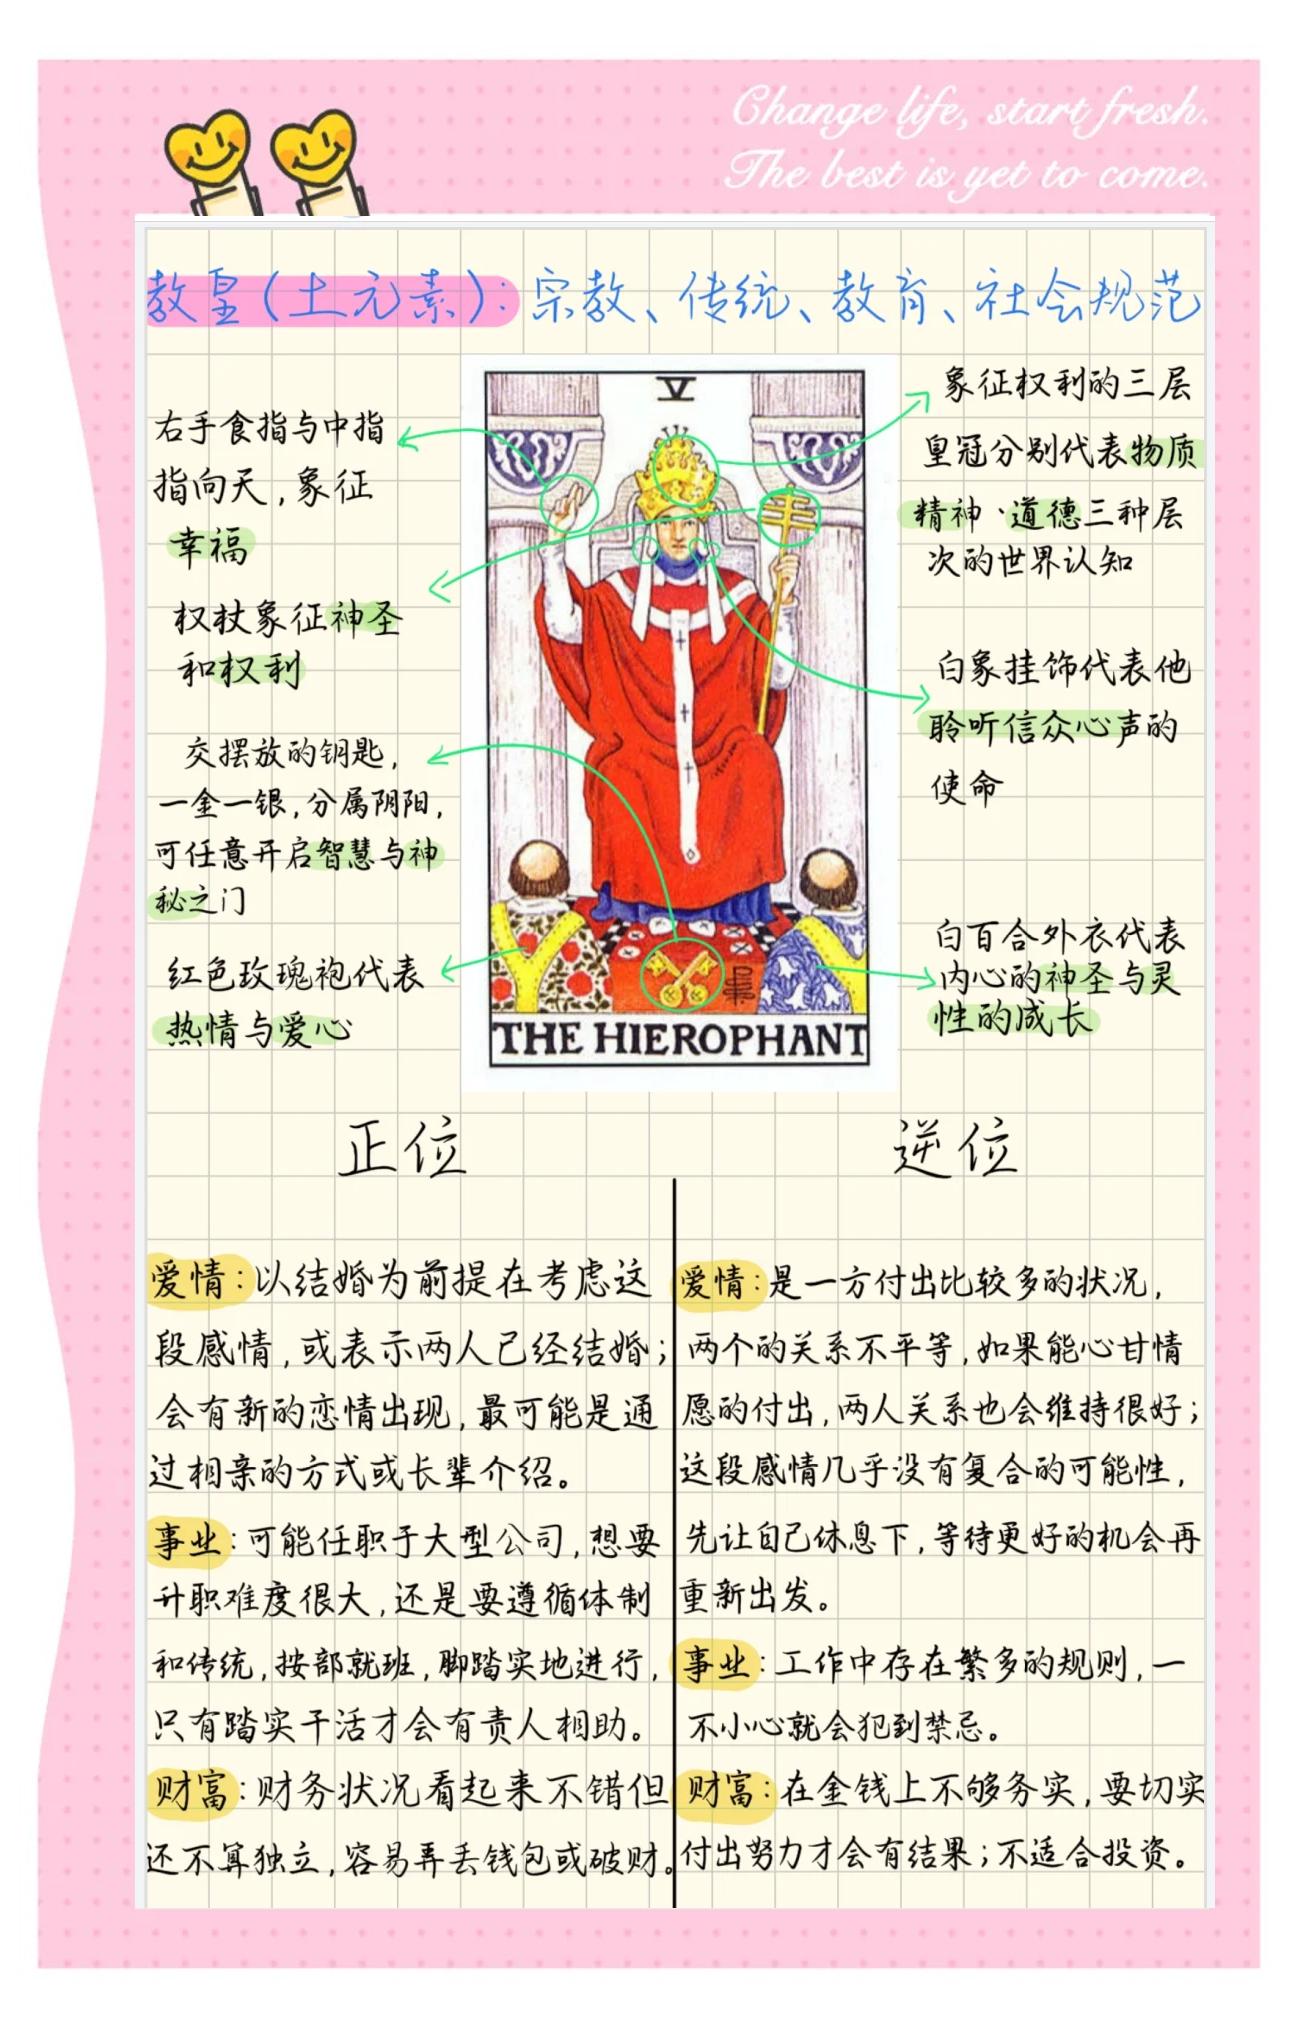 Change life, start fresh.
The best is yet to come.
教皇(土元素):宗教、传统、教育、社会规范
右手食指与中指
指向天,象征
幸福
权杖象征神圣
和权利
交摆放的钥匙,
一金一银,分属阴阳,
可任意开启智慧与神
秘之门
红色玫瑰袍代表
热情与爱心
V
THE HIEROPHANT
象征权利的三层
皇冠分别代表物质
精神、道德三种层
次的世界认知
白象挂饰代表他
聆听信众心声的
使命
白百合外衣代表
内心的神圣与灵
性的成长
正位
爱情:以结婚为前提在考虑这
段感情,或表示两人已经结婚;
会有新的恋情出现,最可能是通
过相亲的方式或长辈介绍。
事业:可能任职于大型公司,想要
升职难度很大,还是要遵循体制
和传统,按部就班,脚踏实地进行,
只有踏实干活才会有责人相助。
财富:财务状况看起来不错但
还不算独立,容易弄丢钱包或破财。
逆位
爱情:是一方付出比较多的状况,
两个的关系不平等,如果能心甘情
愿的付出,两人关系也会维持很好;
这段感情几乎没有复合的可能性,
先让自己休息下,等待更好的机会再
重新出发。
事业:工作中存在繁多的规则,一
不小心就会犯到禁忌。
财富:在金钱上不够务实,要切实
付出努力才会有结果;不适合投资。